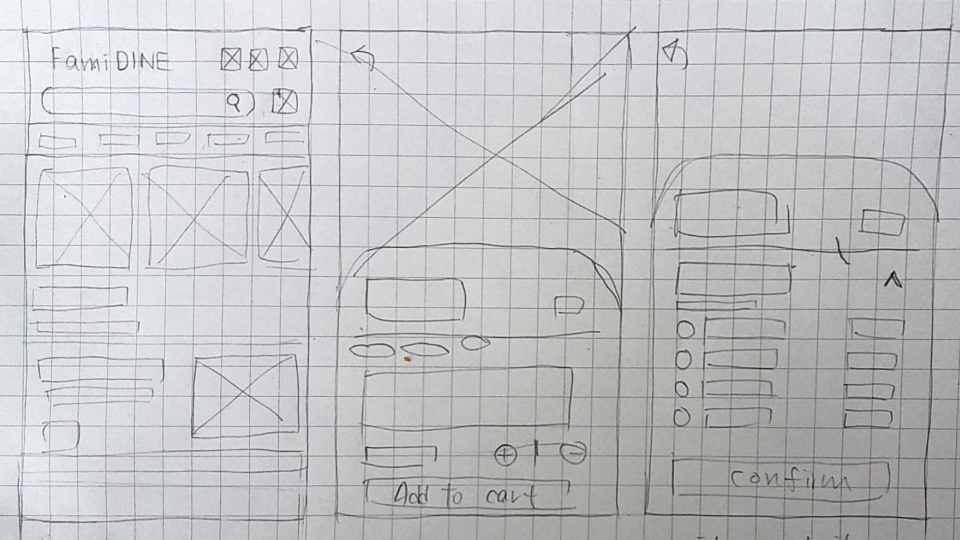 FamiDINE
Add to cart
confirm